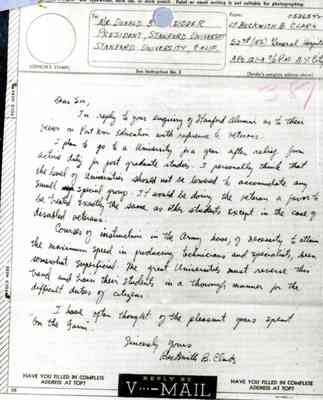 To:
Mr Donald B.
President, Stanford University
Stanford University, Calif.
From:
Lt. Beckwith B. Clark
General Hospital
(CENSOR'S STAMP)
See Instruction No. 2
(Sender's complete address above)
Dear Sir,
In reply to your enquiry of Stanford Alumni as to their
views on Post War Education with reference to veterans.
I plan to go to a University for a year after relief from
active duty for post graduate studies. I personally think that
the level of Universities should not be lowered to accommodate any
small special group. It would be doing the veteran a favor to
be treated exactly the same as other students except in the case of
disabled veterans.
Courses of instruction in the Army have, of necessity to attain
the maximum speed in producing technicians and specialists, been
somewhat superficial. The great Universities must reverse this
trend and train their students in a thorough manner for the
difficult duties of citizens.
I have often thought of the pleasant years spent
"On the Farm".
Sincerely Yours
Beckwith B. Clark
HAVE YOU FILLED IN COMPLETE
ADDRESS AT TOP?
REPLY BY
V···—MAIL
HAVE YOU FILLED IN COMPLETE
ADDRESS AT TOP?